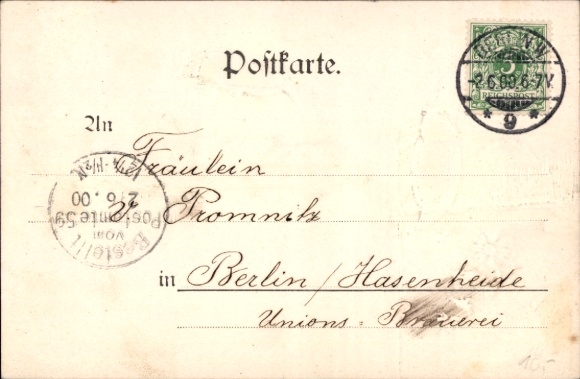 Postkarte.
BERLIN N.W.
5
-2.6.00.6-7V.
REICHSPOST
* 9 *
An
Fräulein
V. Promnitz
in Berlin / Hasenheide
Unions-Brauerei
Bestellt
vom
Postamte 59
2.6.00